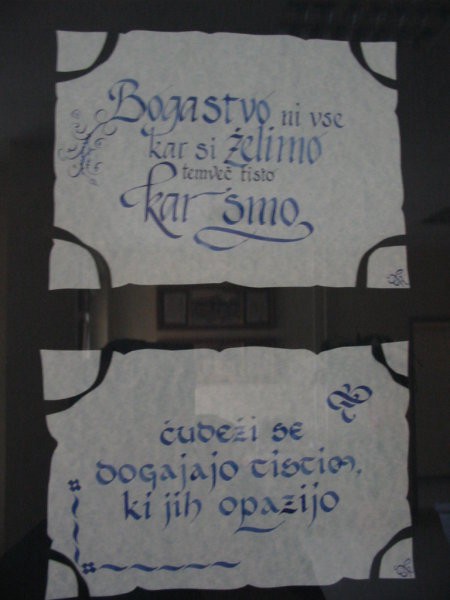 Bogastvo ni vse
kar si želimo
temveč tisto
kar smo
čudeži se
dogajajo tistim,
ki jih opazijo